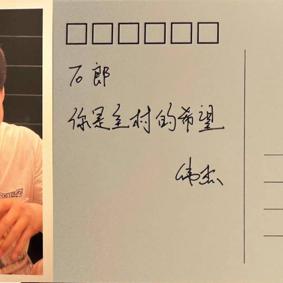 石郎
你是全村的希望
伟杰